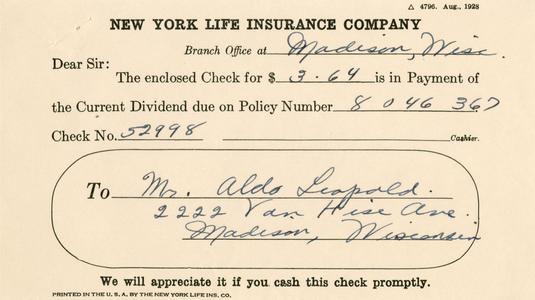 △ 4796. Aug., 1928
NEW YORK LIFE INSURANCE COMPANY
Branch Office at Madison, Wisc.
Dear Sir:
The enclosed Check for $ 3.64 is in Payment of
the Current Dividend due on Policy Number 8 046 367
Check No. 52998 Cashier.
To Mr. Aldo Leopold.
2222 Van Hise Ave.
Madison, Wisconsin
We will appreciate it if you cash this check promptly.
PRINTED IN THE U. S. A. BY THE NEW YORK LIFE INS. CO.